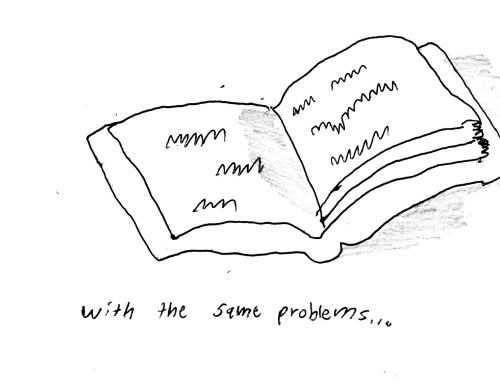 with the same problems...